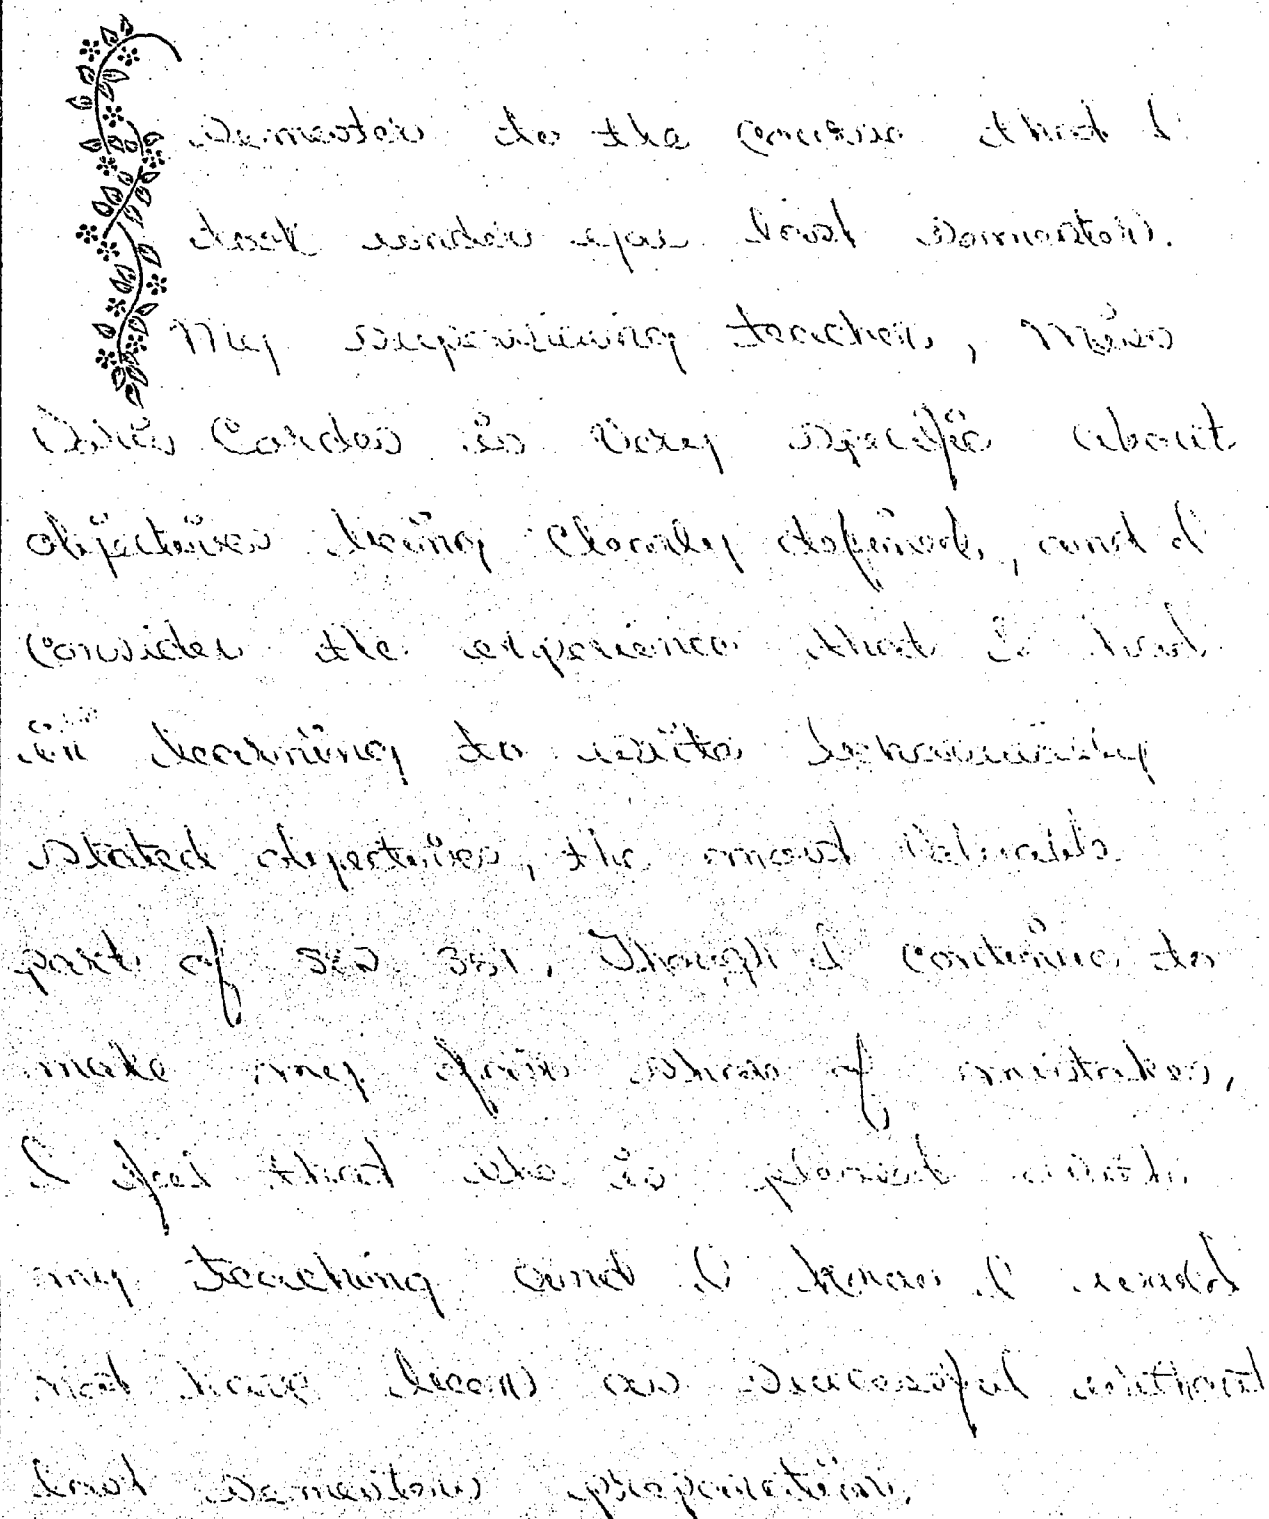 semester to the course that I
took under you last semester.
My supervising teacher, Miss
Cardos is very specific about
objectives being clearly defined, and I
consider the experience that I had
in learning to write behaviorally
stated objectives, the most valuable
part of SED 351. Though I continue to
make my fair share of mistakes,
I feel that she is pleased with
my teaching and I know I would
not have been as successful without
last semesters preparation.